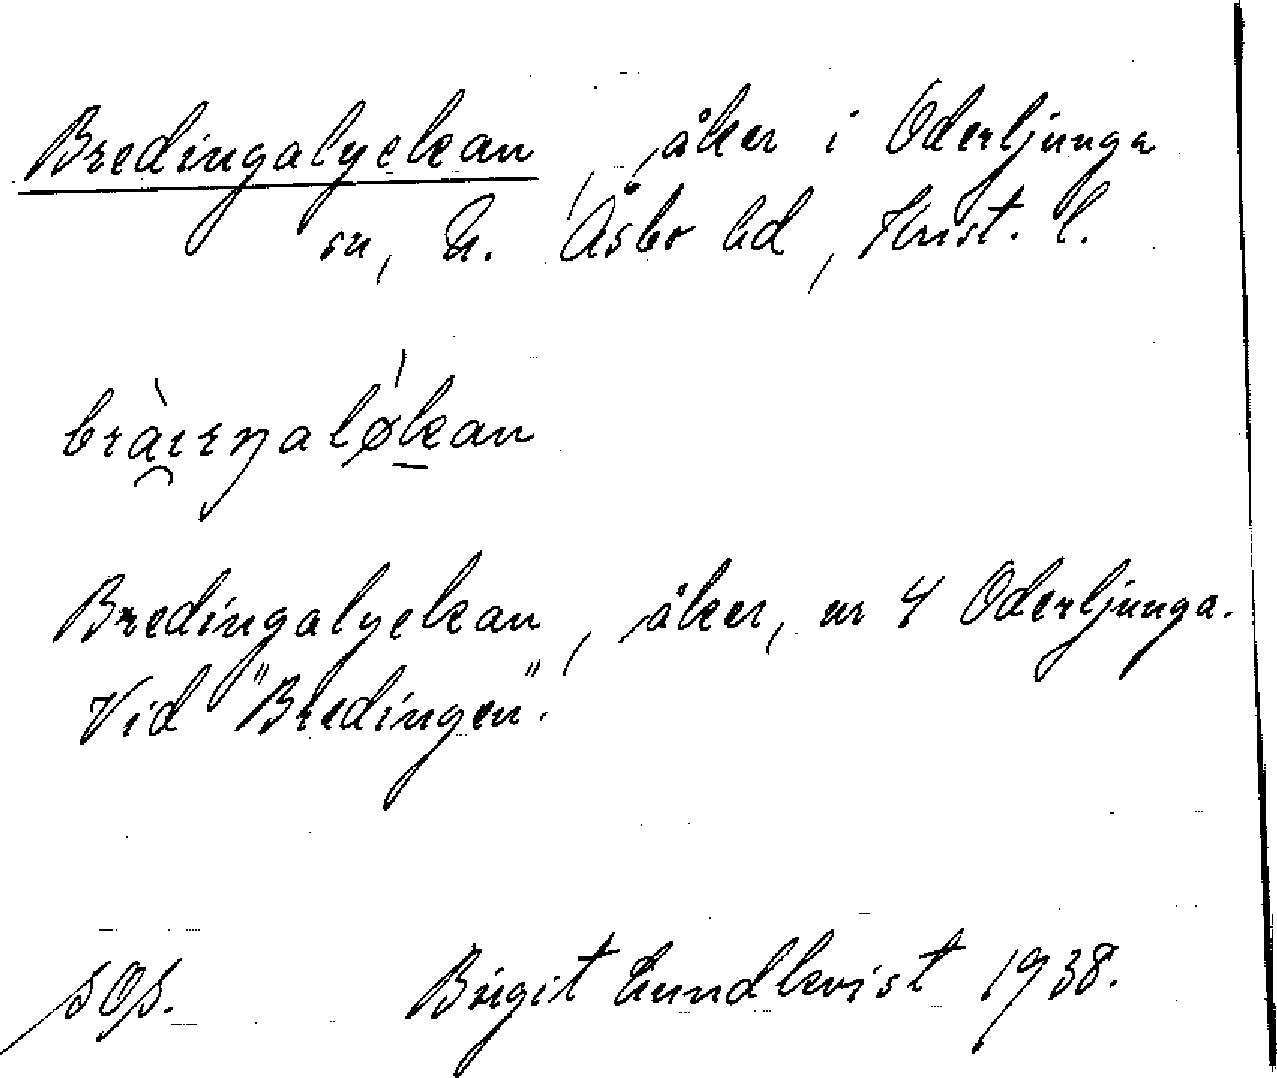 Bredingalyckan, åker i Oderljunga
sn, N. Åsbo hd, Krist. l.
bràɪɪŋaløkan
Bredingalyckan, åker, nr 4 Oderljunga.
Vid "Bredingen".
SOS. Birgit Lundkvist 1938.